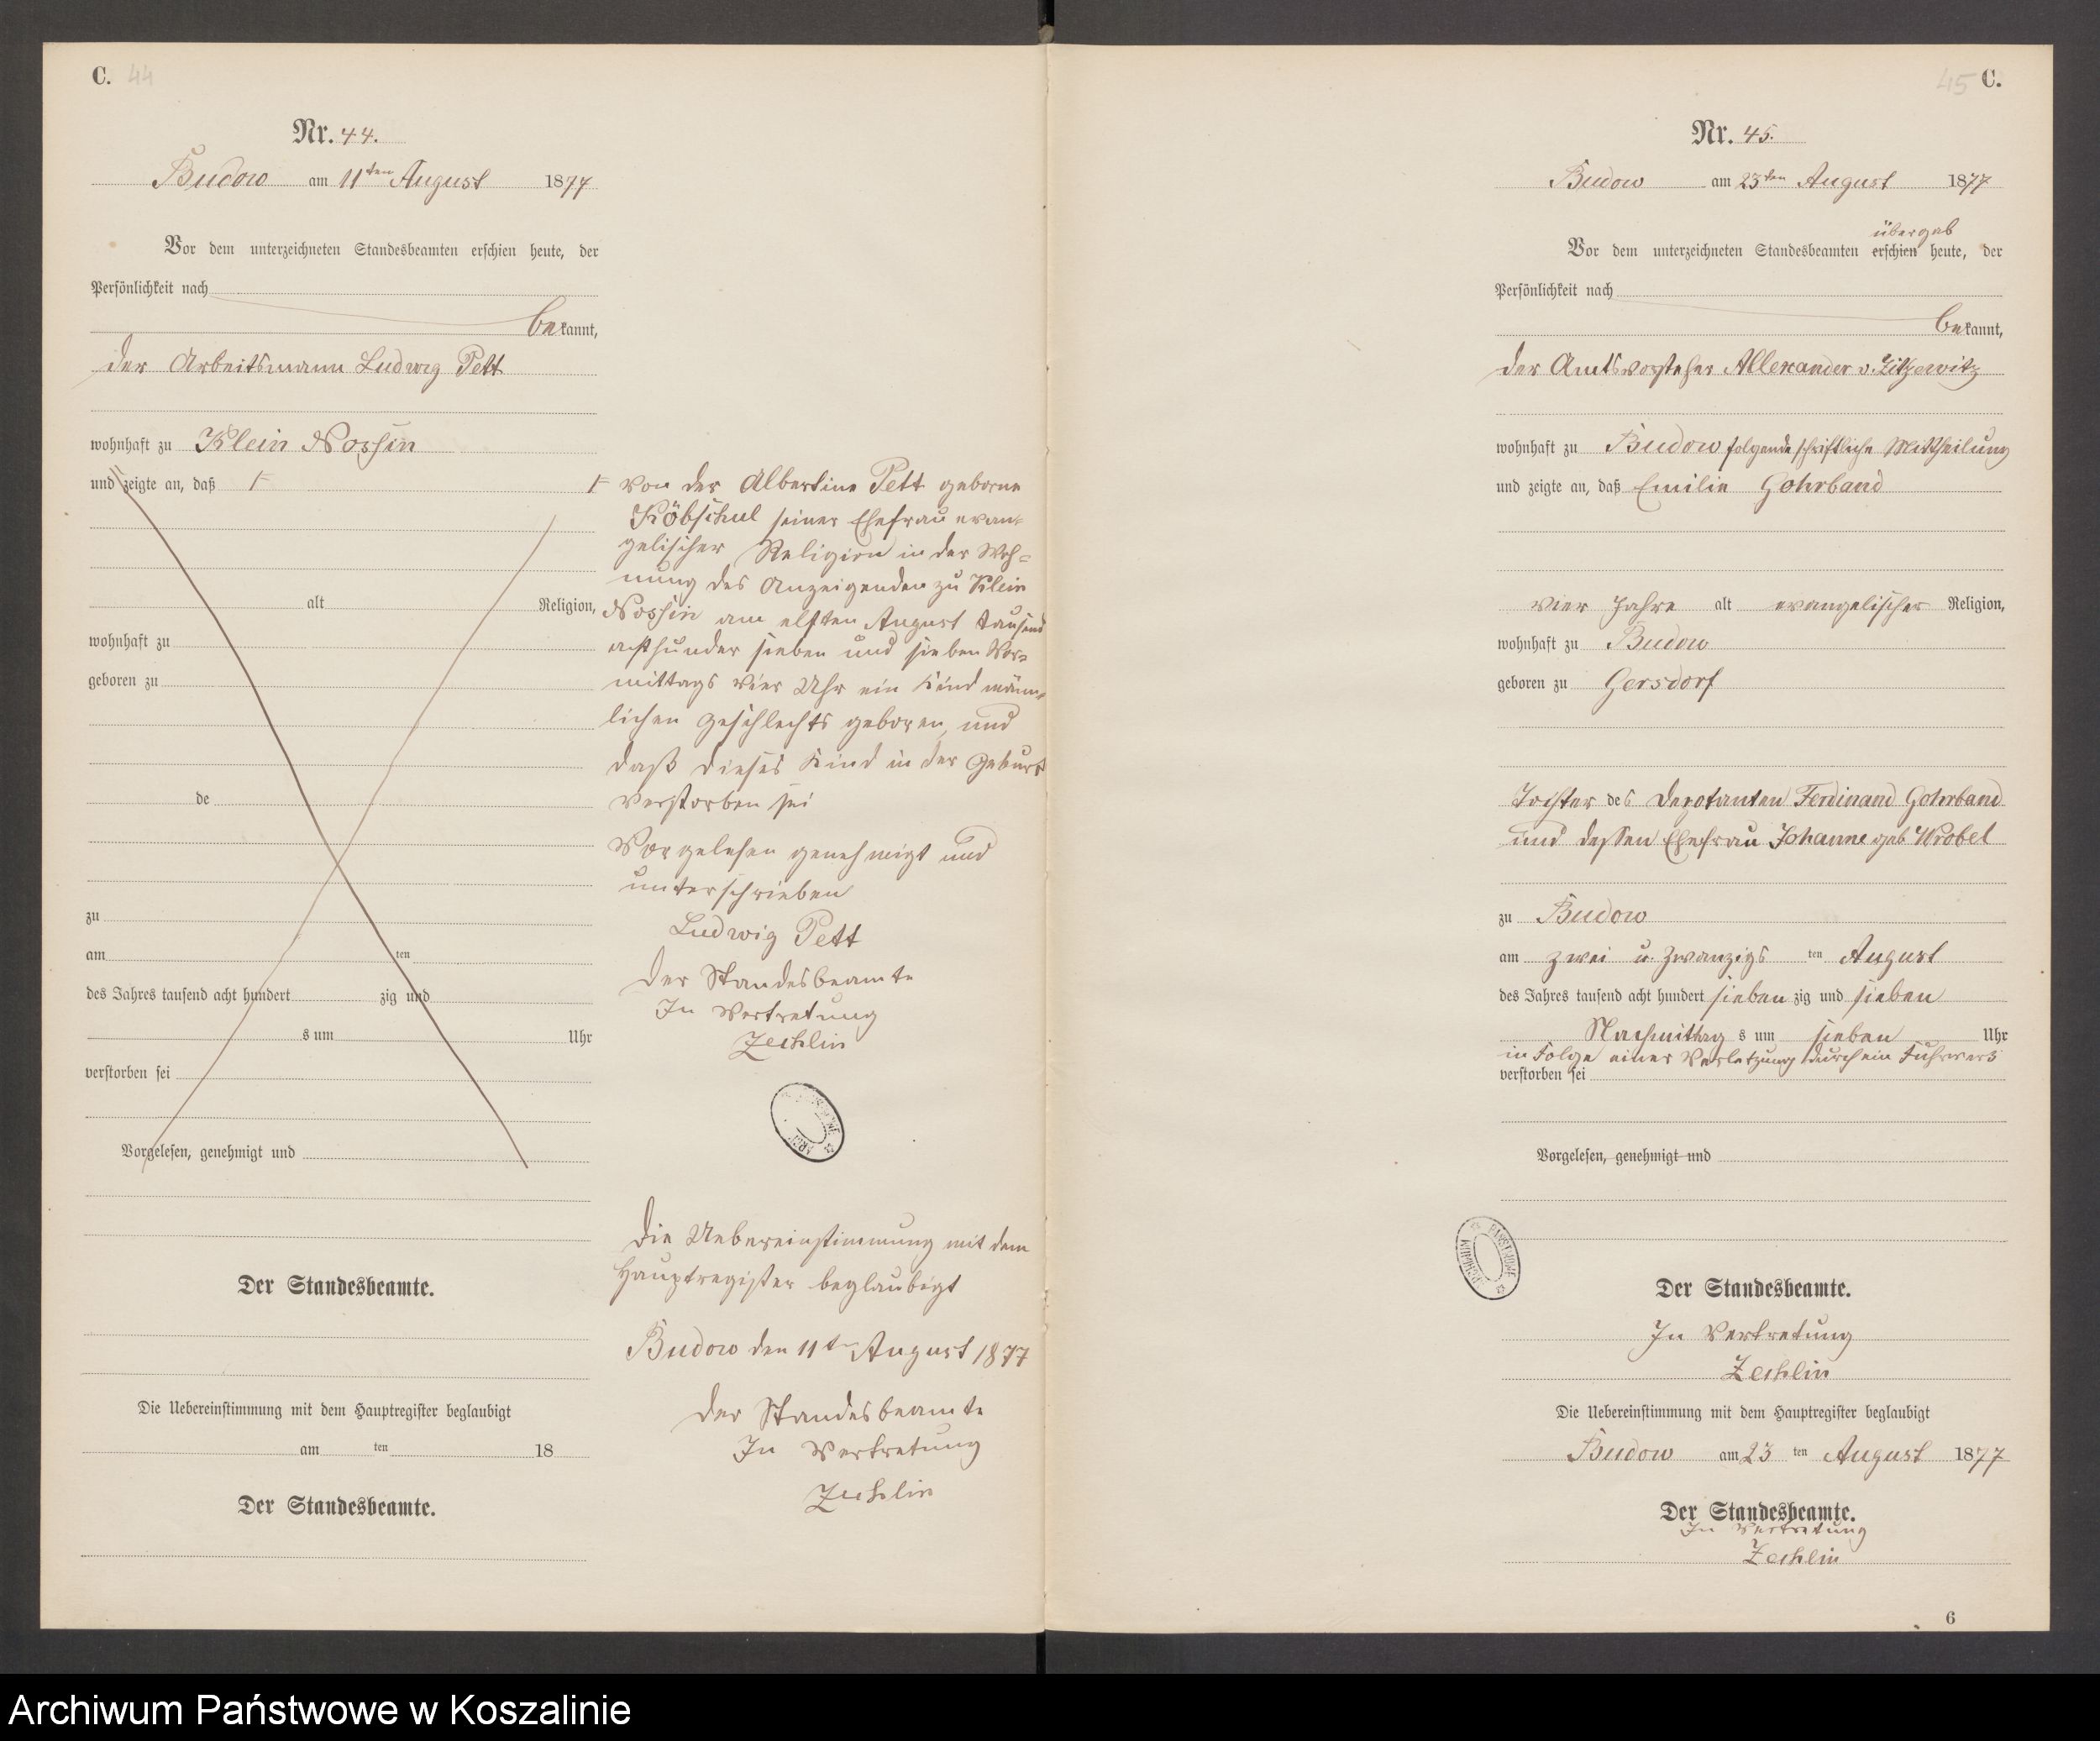 C. 44
Nr. 44.
Budow am 11ten August 1877
Vor dem unterzeichneten Standesbeamten erschien heute, der
Persönlichkeit nach
bekannt,
der Arbeitsmann Ludwig Pett
wohnhaft zu Klein Nossin
und zeigte an, daß
alt Religion,
wohnhaft zu
geboren zu
de
zu
am ten
des Jahres tausend acht hundert zig und
s um Uhr
verstorben sei
Vorgelesen, genehmigt und
Der Standesbeamte.
Die Uebereinstimmung mit dem Hauptregister beglaubigt
am ten 18
Der Standesbeamte.
von der Albertine Pett geborne
seiner Ehefrau evan-
gelischer Religion in der Woh-
nung des Anzeigenden zu Klein
Nossin am elften August tausend
achthunder sieben und sieben Vor-
mittags vier Uhr ein Kind männ-
lichen Geschlechts geboren, und
daß dieses Kind in der Geburt
verstorben sei
Vorgelesen genehmigt und
unterschrieben
Ludwig Pett
Der Standesbeamte
In Vertretung
Zechlin
Die Uebereinstimmung mit dem
Hauptregister beglaubigt
Budow den 11ten August 1877
Der Standesbeamte
In Vertretung
Zechlin
45 C.
Nr. 45.
Budow am 23ten August 1877
übergab
Vor dem unterzeichneten Standesbeamten erschien heute, der
Persönlichkeit nach
bekannt,
der Amtsvorsteher Allexander v. Zitzewitz
wohnhaft zu Budow folgende schriftliche Mittheilung
und zeigte an, daß Emilie Gohrband
vier Jahre alt evangelischer Religion,
wohnhaft zu Budow
geboren zu Gersdorf
Tochter des Deputanten Ferdinand Gohrband
und dessen Ehefrau Johanne geb Wrobel
zu Budow
am zwei u. zwanzigs ten August
des Jahres tausend acht hundert sieben zig und sieben
Nachmittag s um sieben Uhr
in Folge einer Verletzung durch ein Fuhrwerk
verstorben sei
Vorgelesen, genehmigt und
Der Standesbeamte.
In Vertretung
Zechlin
Die Uebereinstimmung mit dem Hauptregister beglaubigt
Budow am 23 ten August 1877
Der Standesbeamte.
In Vertretung
Zechlin
6
Archiwum Państwowe w Koszalinie